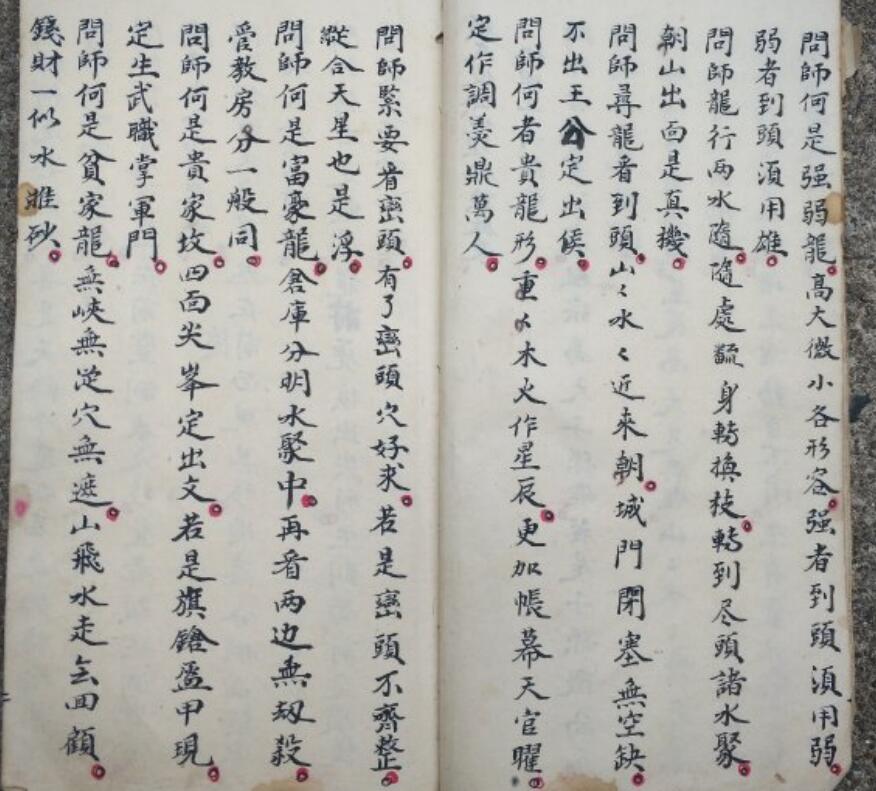 問師何是强弱龍高大微小各形容强者到頭須用弱
弱者到頭須用雄
問師龍行两水隨隨處翻身轉换枝轉到尽頭諸水聚
朝山出面是真機
問師尋龍看到頭山〻水〻近来朝城門閉塞無空缺
不出王公定出侯
問師何者貴龍形重〻木火作星辰更加帳幕天官曜
定作調羹鼎萬人
問師緊要看巒頭有了巒頭穴好求若是巒頭不齊整
縱合天星也是浮
問師何是富豪龍倉庫分明水聚中再看两边無刼殺
管教房分一般同
問師何是貴家坟四面尖峯定出文若是旗鎗盔甲現
定生武職掌軍門
問師何是貧家龍無峽無從穴無遮山飛水走去回顧
錢財一似水推砂